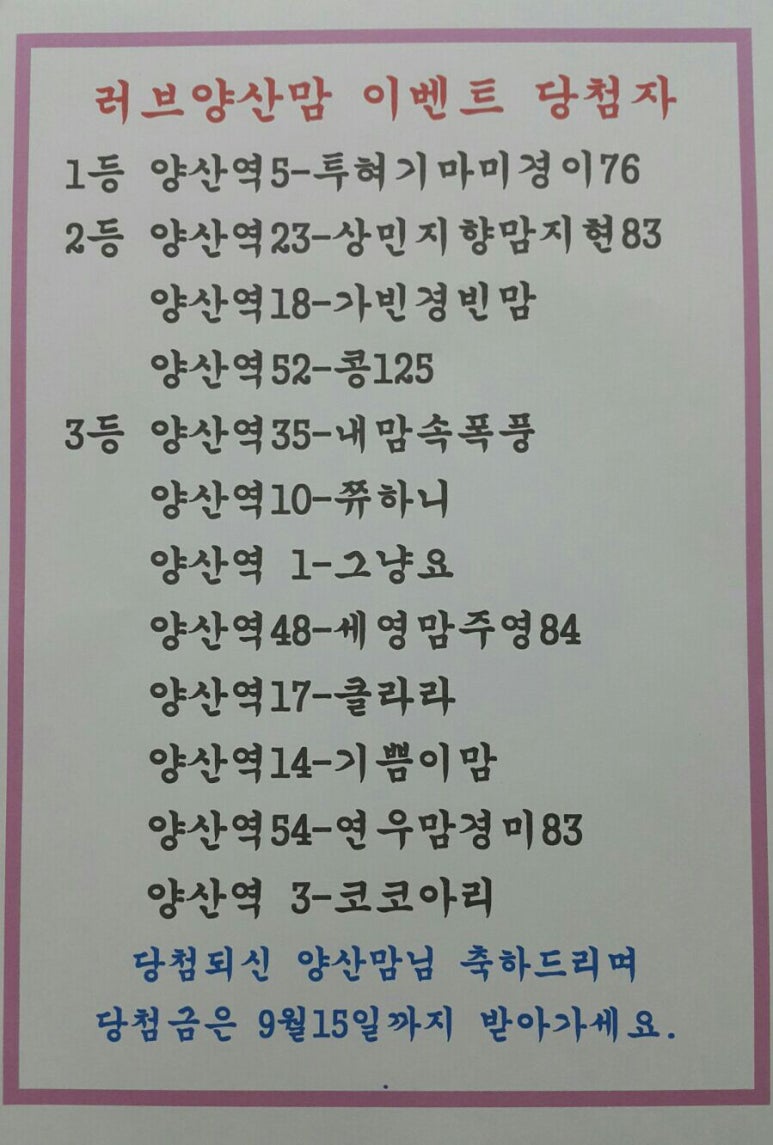 러브양산맘 이벤트 당첨자
1등 양산역5-투혀기마미경이76
2등 양산역23-상민지향맘지현83
양산역18-가빈경빈맘
양산역52-콩125
3등 양산역35-내맘속폭풍
양산역10-쮸하니
양산역 1-그냥요
양산역48-세영맘주영84
양산역17-클라라
양산역14-기쁨이맘
양산역54-연우맘경미83
양산역 3-코코아리
당첨되신 양산맘님 축하드리며
당첨금은 9월15일까지 받아가세요.